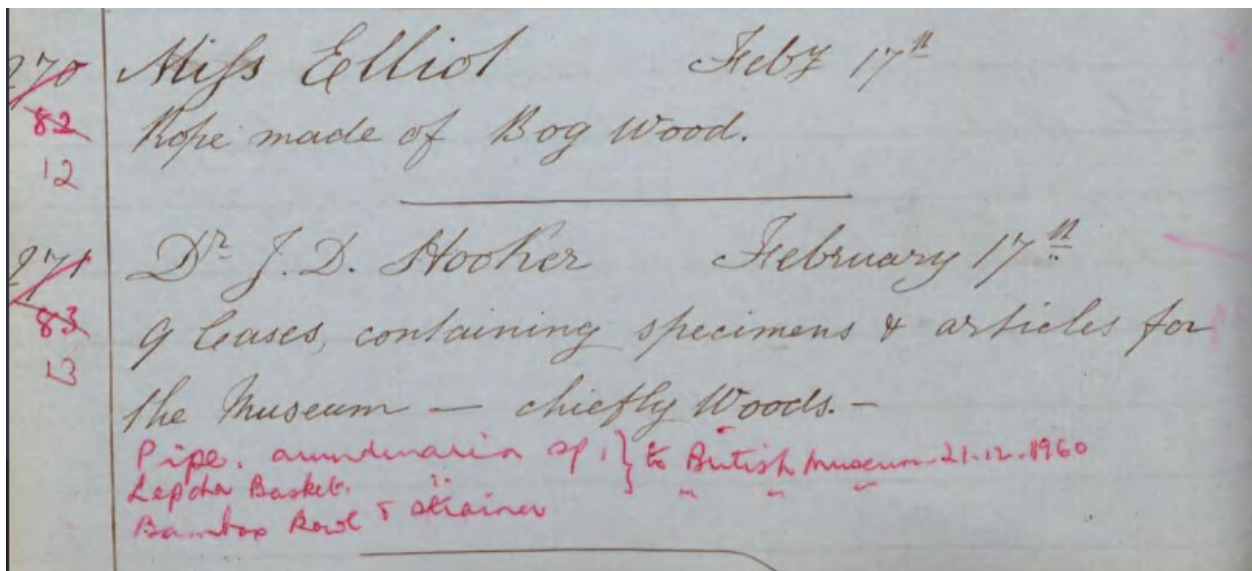 270 Miss Elliot Feby 17th
82 Rope made of Bog Wood.
12
271 Dr J. D. Hooker February 17th
83 9 Cases, containing specimens & articles for
13 the Museum — chiefly Woods. —
Pipe. arundinaria sp. } to British Museum 21.12.1960
Lepcha Basket. " } " " "
Bamboo Bowl & strainer